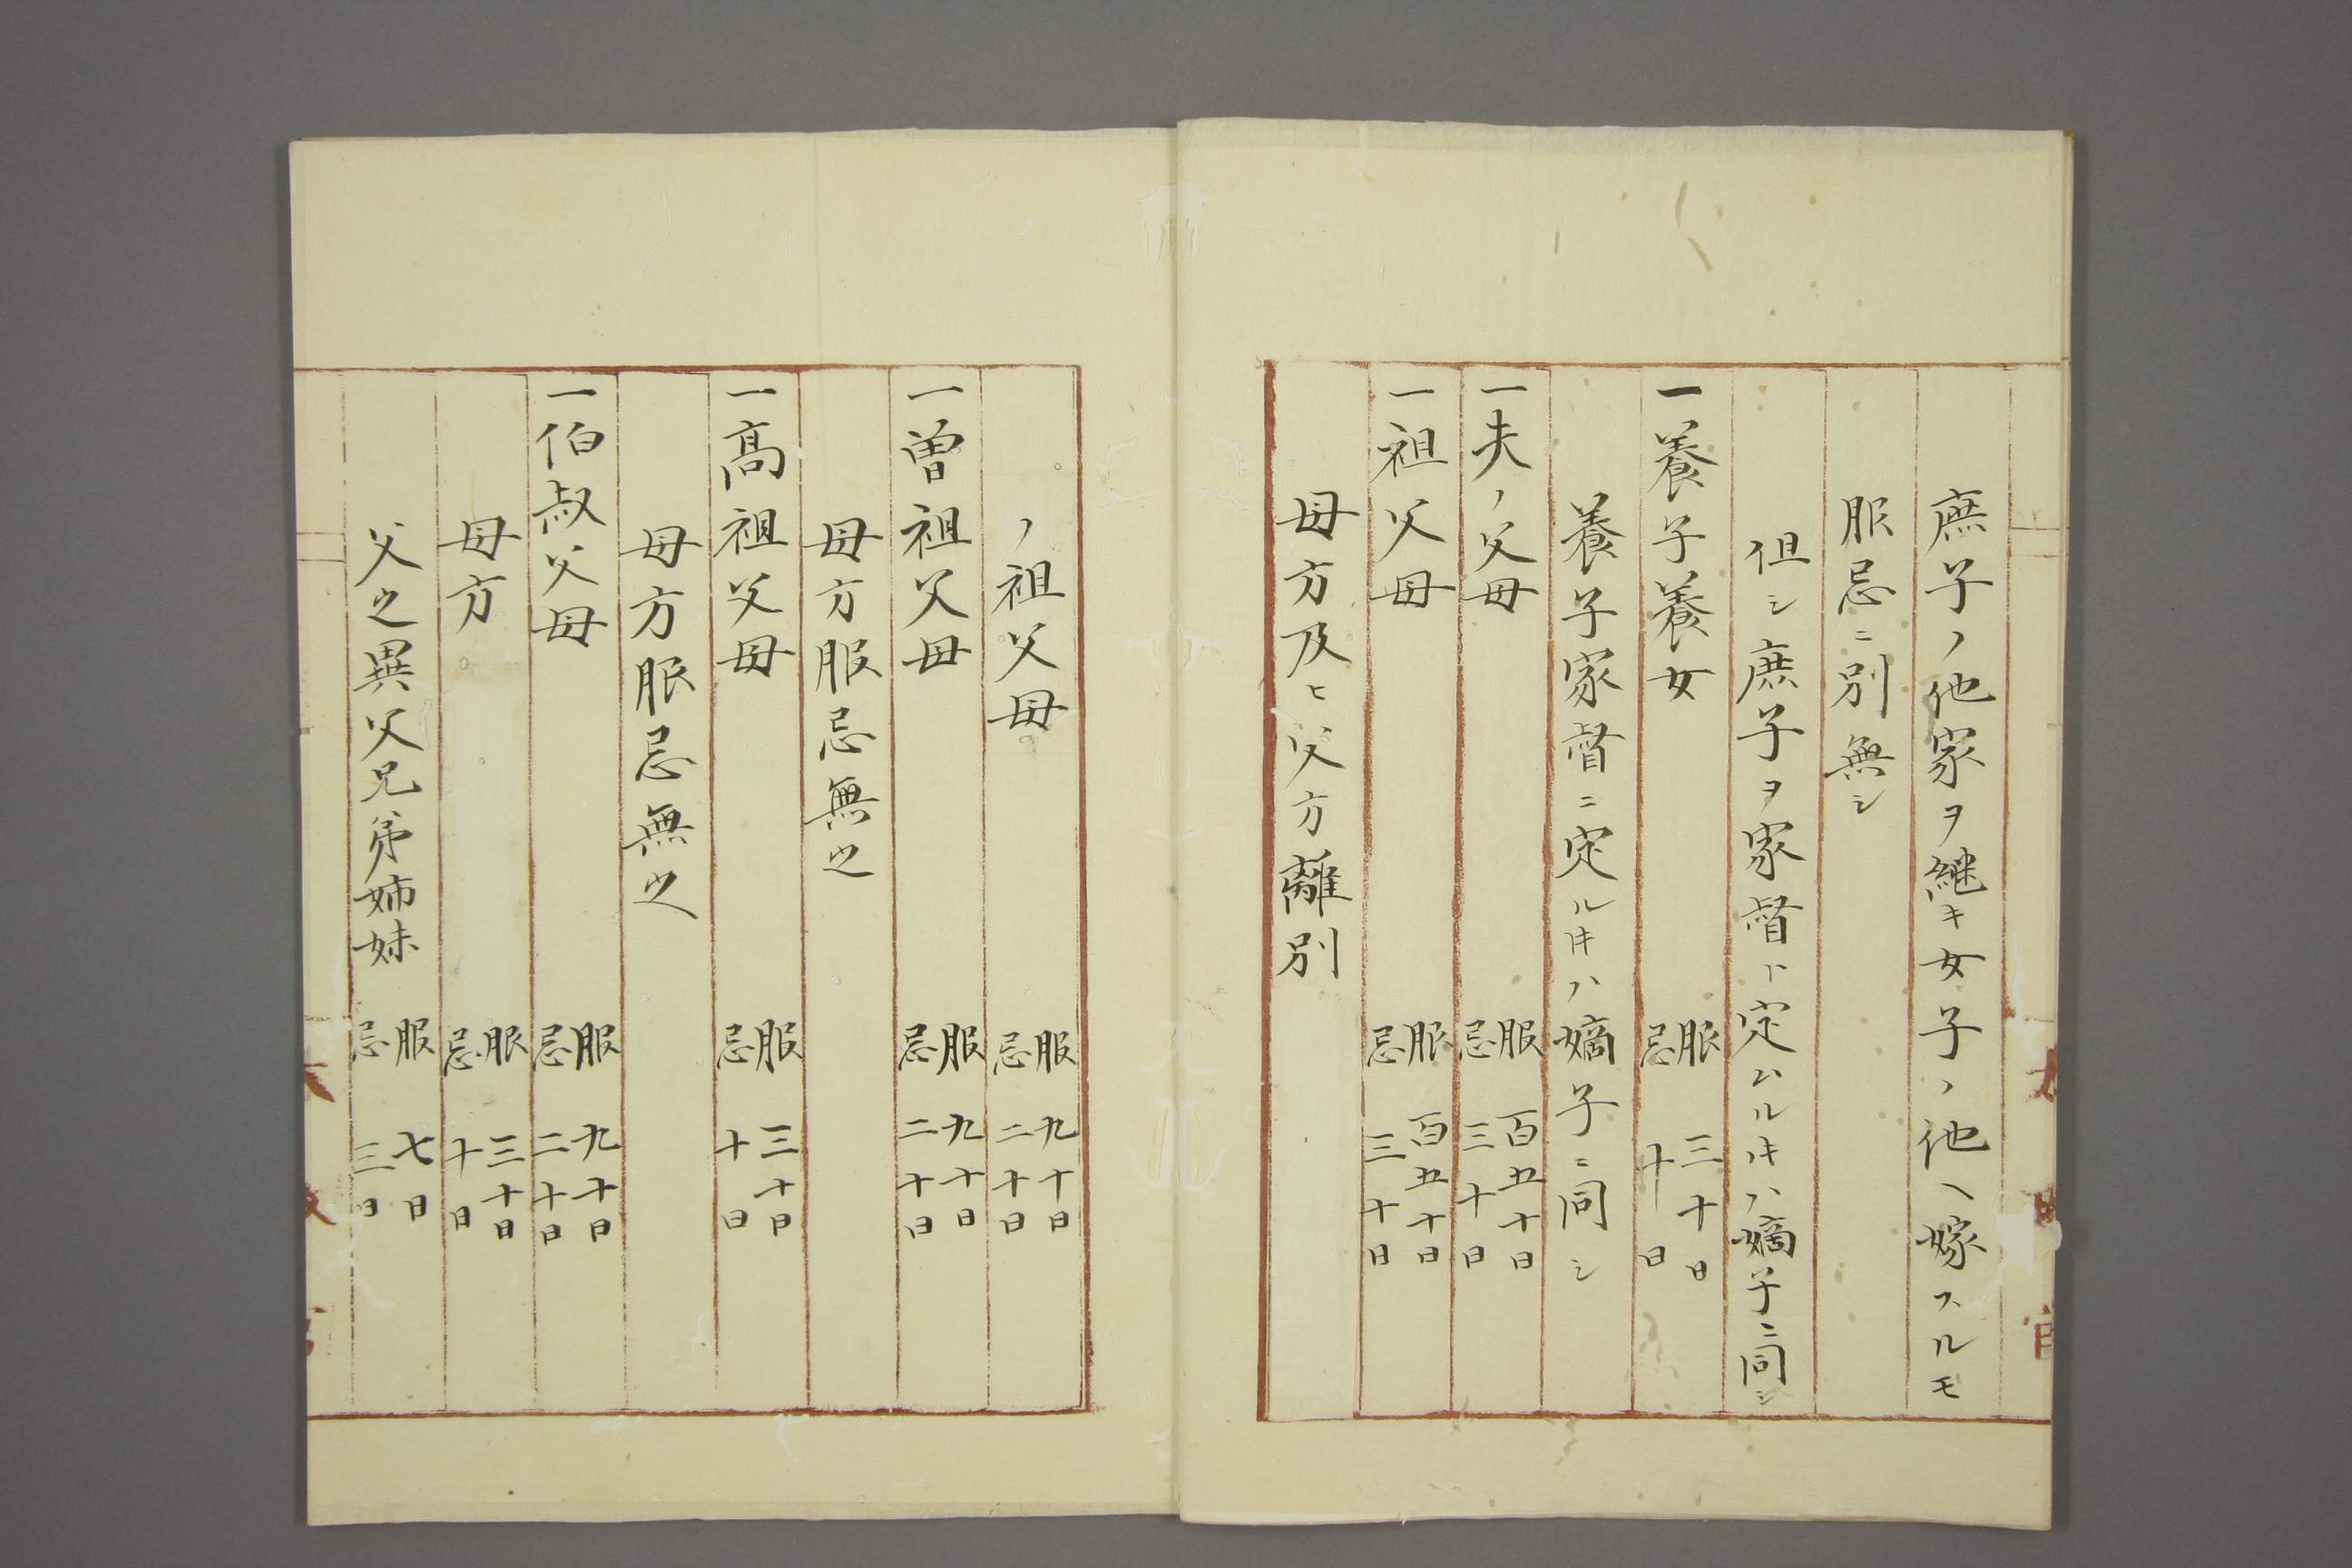 庶子ノ他家ヲ継キ女子ノ他ヘ嫁スルモ
服忌ニ別無シ
但シ庶子ヲ家督ト定ムルキハ嫡子ニ同シ
一養子養女 服 三十日 忌 十日
養子家督ニ定ルキハ嫡子ニ同シ
一夫ノ父母 服 百五十日 忌 三十日
一祖父母 服 百五十日 忌 三十日
母方及ヒ父方離別
ノ祖父母 服 九十日 忌 二十日
一曽祖父母 服 九十日 忌 二十日
母方服忌無之
一髙祖父母 服 三十日 忌 十日
母方服忌無之
一伯叔父母 服 九十日 忌 二十日
母方 服 三十日 忌 十日
父之異父兄弟姉妹 服 七日 忌 三日